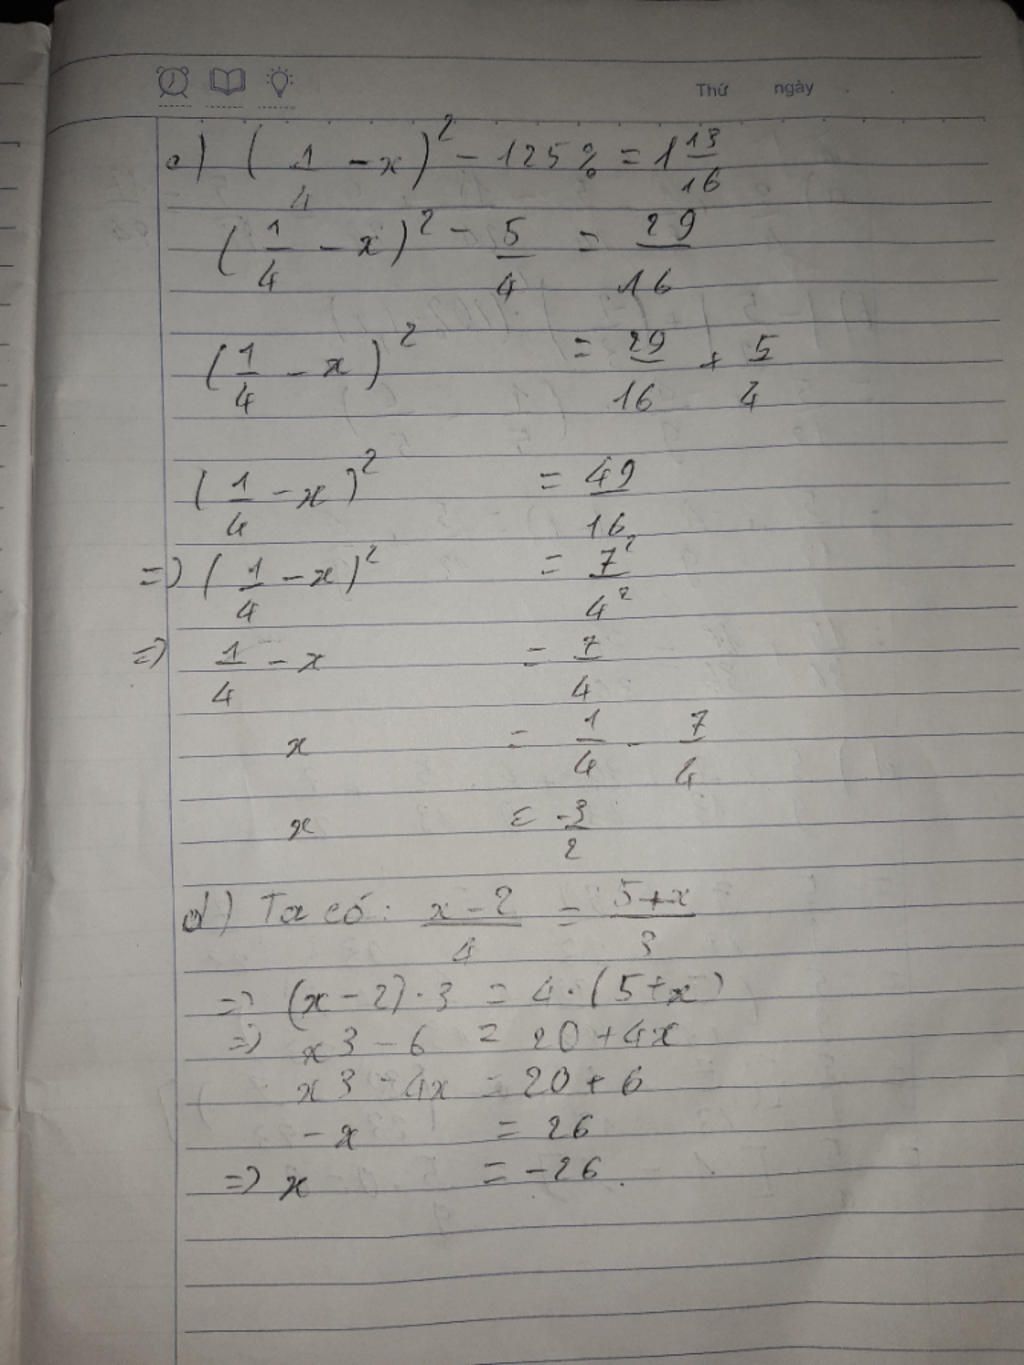 Thứ ngày
c) (1/4 - x)² - 125% = 1 13/16
(1/4 - x)² - 5/4 = 29/16
(1/4 - x)² = 29/16 + 5/4
(1/4 - x)² = 49/16
=> (1/4 - x)² = 7²/4²
=> 1/4 - x = 7/4
x = 1/4 - 7/4
x = -3/2
d) Ta có: x - 2/4 = 5 + x/3
=> (x - 2) · 3 = 4 · (5 + x)
=> x3 - 6 = 20 + 4x
x3 - 4x = 20 + 6
- x = 26
=> x = -26.